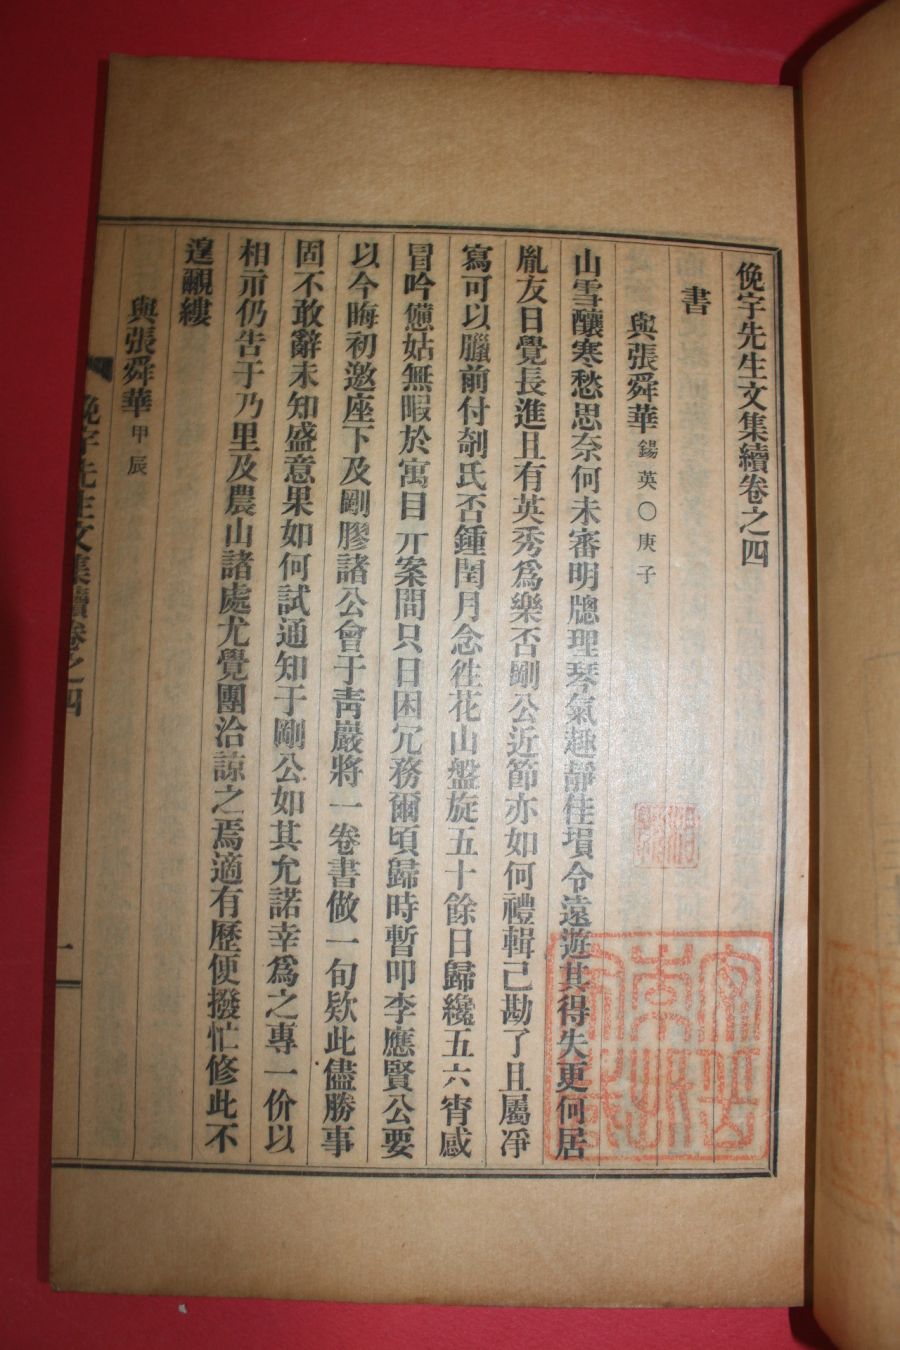 俛宇先生文集續卷之四
書
與張舜華錫英〇庚子
山雪釀寒愁思奈何未審明牕理琴氣趣靜佳塤令遠遊其得失更何居
胤友日覺長進且有英秀爲樂否剛公近節亦如何禮輯已勘了且屬凈
寫可以臘前付剞氏否鍾閏月念徃花山盤旋五十餘日歸纔五六宵感
冒吟憊姑無暇於寓目丌案間只日困冗務爾頃歸時暫叩李應賢公要
以今晦初邀座下及剛膠諸公會于靑巖將一卷書做一旬欵此儘勝事
固不敢辭未知盛意果如何試通知于剛公如其允諾幸爲之專一价以
相示仍告于乃里及農山諸處尤覺團洽諒之焉適有歷便撥忙修此不
遑覼縷
與張舜華甲辰
俛宇先生文集續卷之四
一